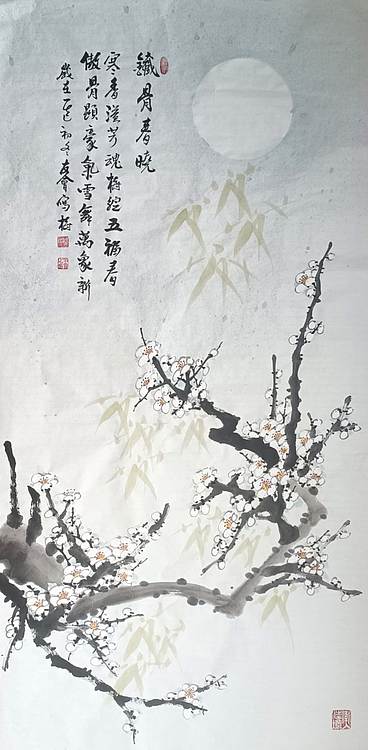 鐵骨春曉
寒香溢芳魂梅綻五福春
傲骨顯豪氣雪舞萬象新
歲在乙巳初冬寫梅